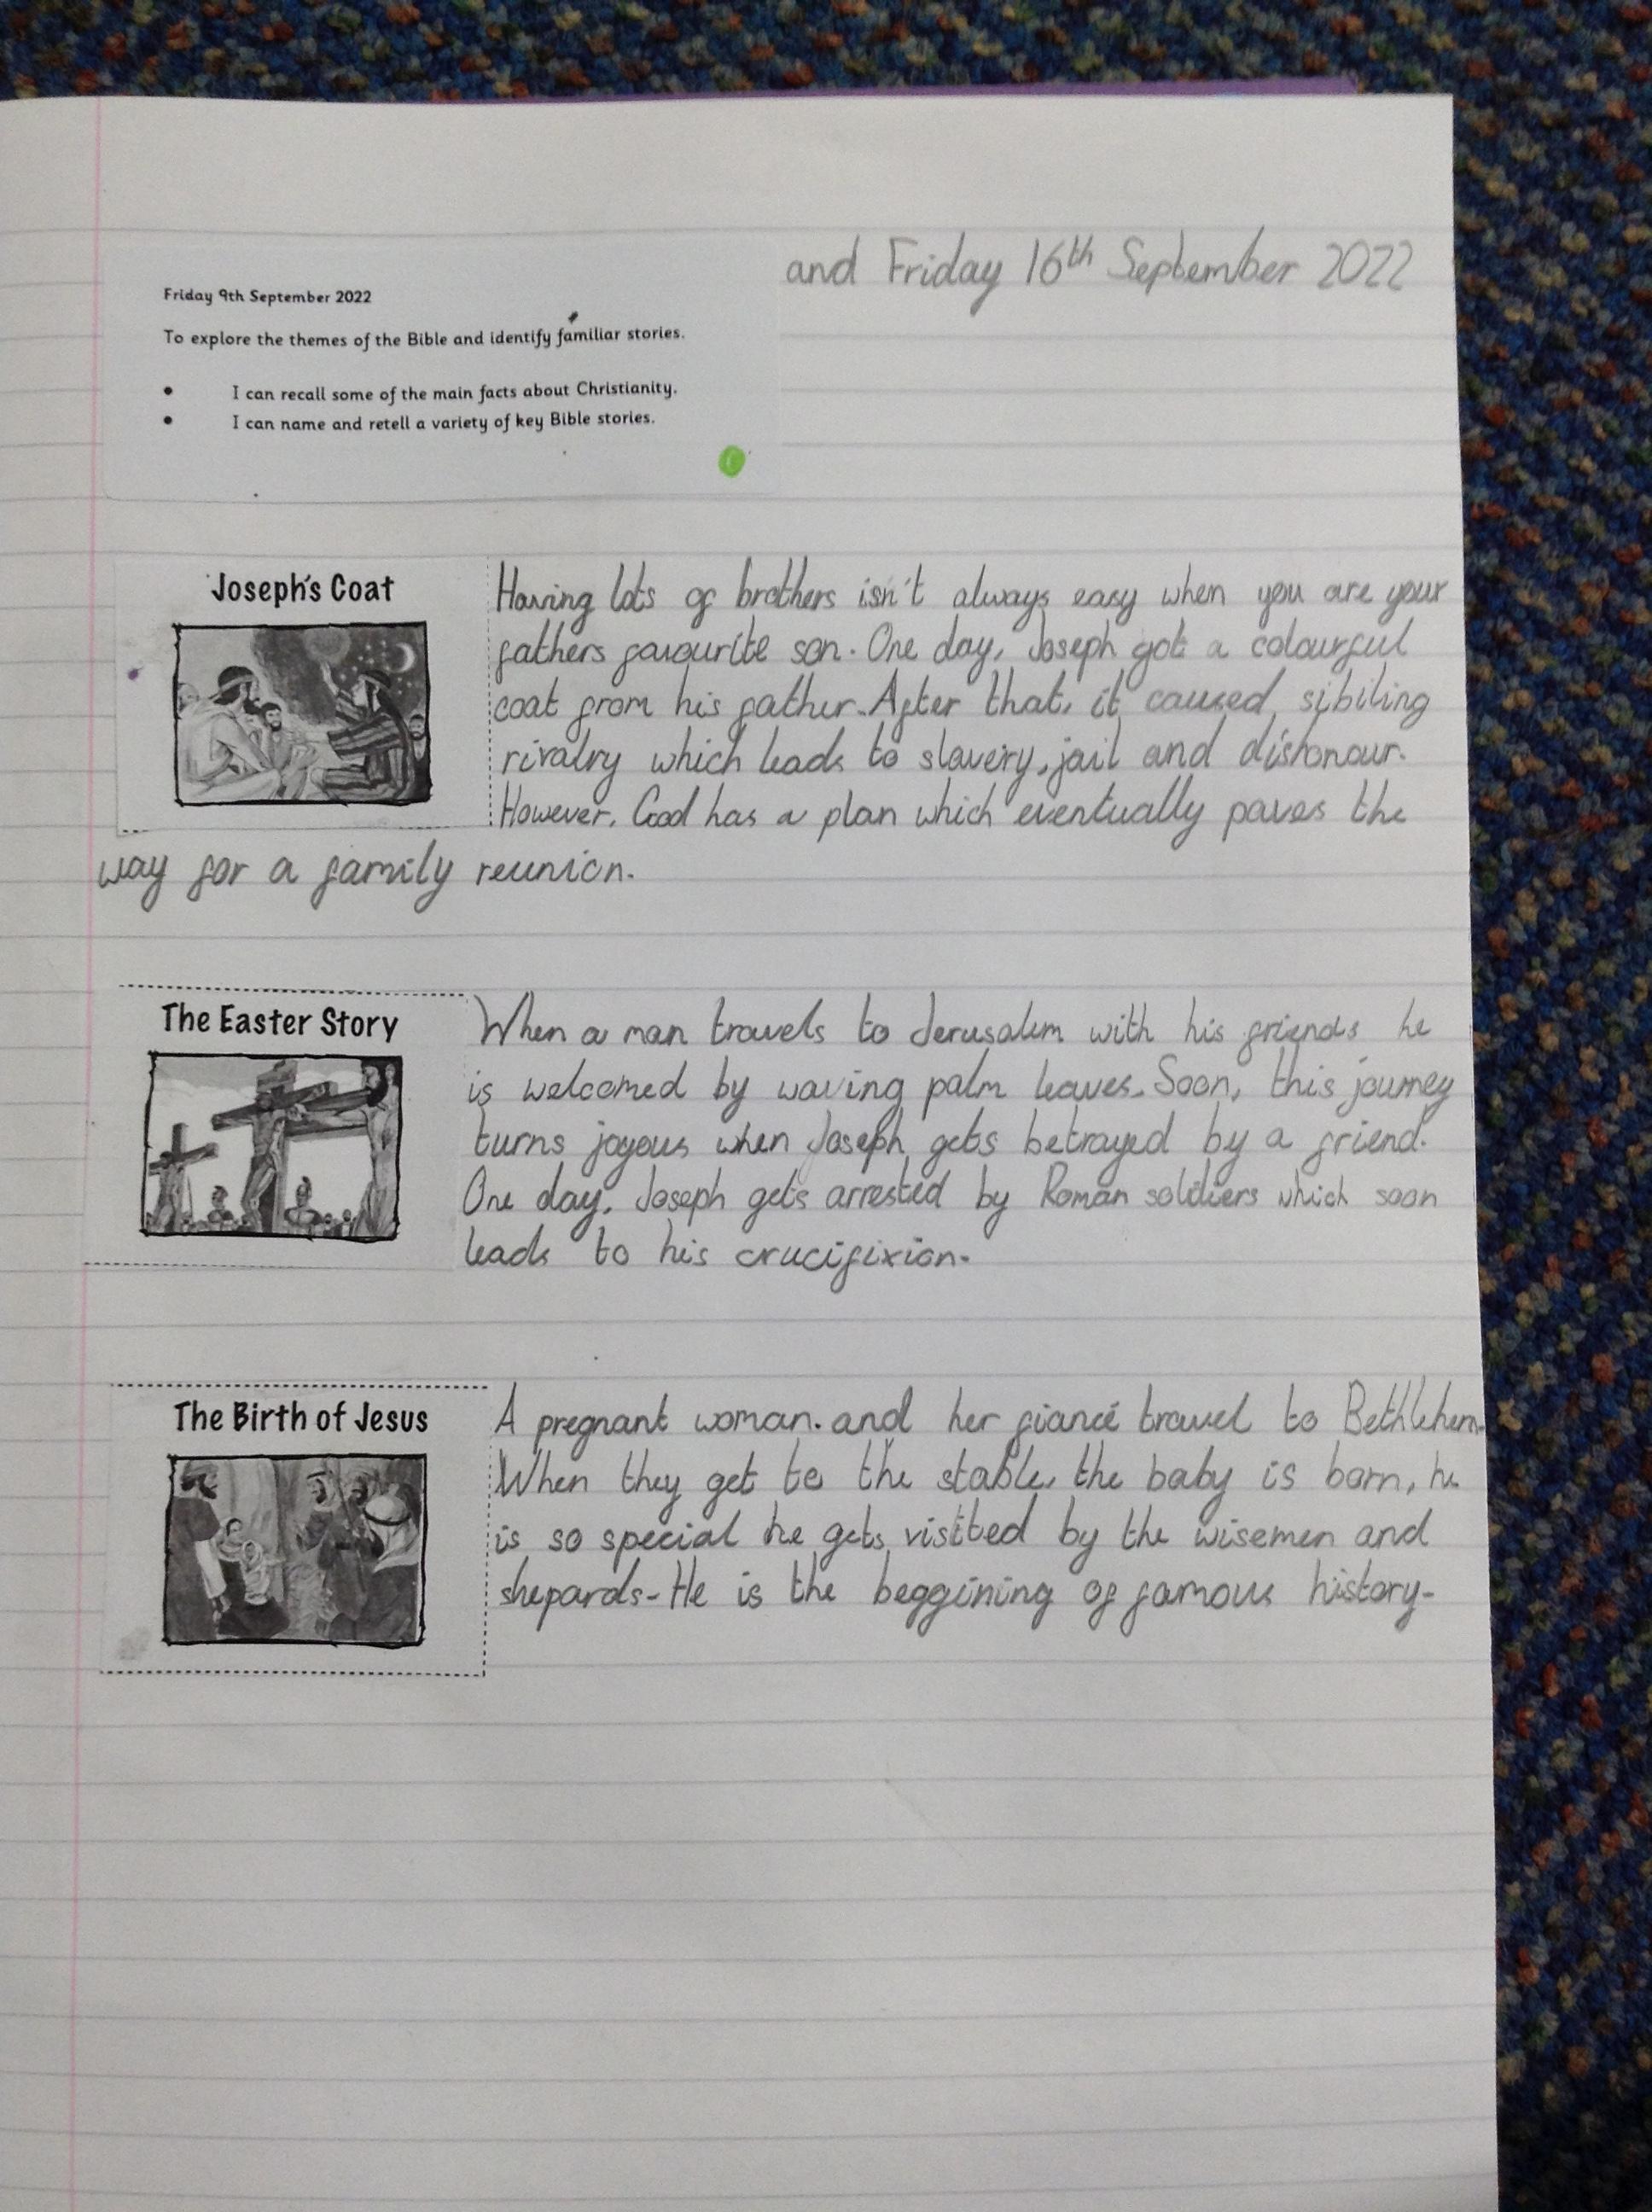 and Friday 16th September 2022
Friday 9th September 2022
To explore the themes of the Bible and identify familiar stories.
• I can recall some of the main facts about Christianity.
• I can name and retell a variety of key Bible stories.
Joseph's Coat
Having lots of brothers isn't always easy when you are your
fathers favourite son. One day, Joseph got a colourful
coat from his father. After that, it caused sibiling
rivalry which leads to slavery, jail and dishonour.
However, God has a plan which eventually paves the
way for a family reunion.
The Easter Story
When a man travels to Jerusalem with his friends he
is welcomed by waving palm leaves. Soon, this journey
turns joyous when Joseph gets betrayed by a friend.
One day, Joseph gets arrested by Roman soldiers which soon
leads to his crucifixion.
The Birth of Jesus
A pregnant woman. and her fiancé travel to Bethlehem.
When they get to the stable, the baby is born, he
is so special he gets visitbed by the wisemen and
shepards. He is the beggining of famous history.